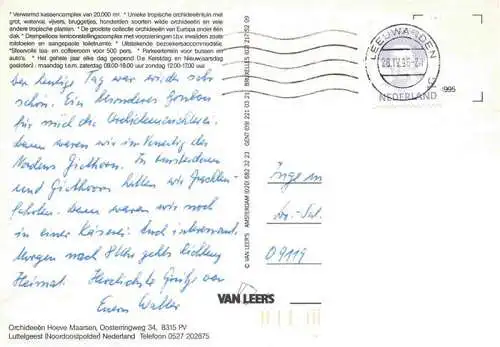 * Verwarmd kassencomplex van 20.000 m². * Unieke tropische orchideeëntuin met
grot, waterval, vijvers, bruggetjes, honderden soorten wilde orchideeën en vele
andere tropische planten. * De grootste collectie orchideeën van Europa onder één
dak. * Drempelloze tentoonstellingscomplex met voorzieningen t.b.v. invaliden zoals
rolstoelen en aangepaste toiletruimte. * Uitstekende bezoekersaccommodatie.
*Sfeervolle les en coffeeroom voor 500 pers. * Parkeerterrein voor bussen en
auto's. * Het gehele jaar elke dag geopend (1.e Kerstdag en Nieuwjaarsdag
gesloten) maandag t.e.m. zaterdag 08:00-18:00 uur zondag 12:00-17:00 uur
Der heutige Tag war wieder sehr
schön. Ein besonderer Genuss
für mich die Orchideenzüchterei.
dann waren wir im Venedig des
Nordens Giethorn. In Amsterdam
und Giethoorn hatten wir Grachten-
fahrten. dann waren wir noch
in einer Käserei. Auch interessant.
Morgen nach 8 Uhr gehts Richtung
Heimat. Herzlichste Grüße von
Eurem Walter
© VAN LEER'S AMSTERDAM (020) 682 32 23 GENT (09) 221 03 21 BRUXELLES (02) 217 52 09
LEEUWARDEN
28.IV.95
NEDERLAND
1995
Inge
09119
VAN LEER'S
Orchideeën Hoeve Maarsen, Oosterringweg 34, 8315 PV
Luttelgeest (Noordoostpolder) Nederland Telefoon 0527 202875